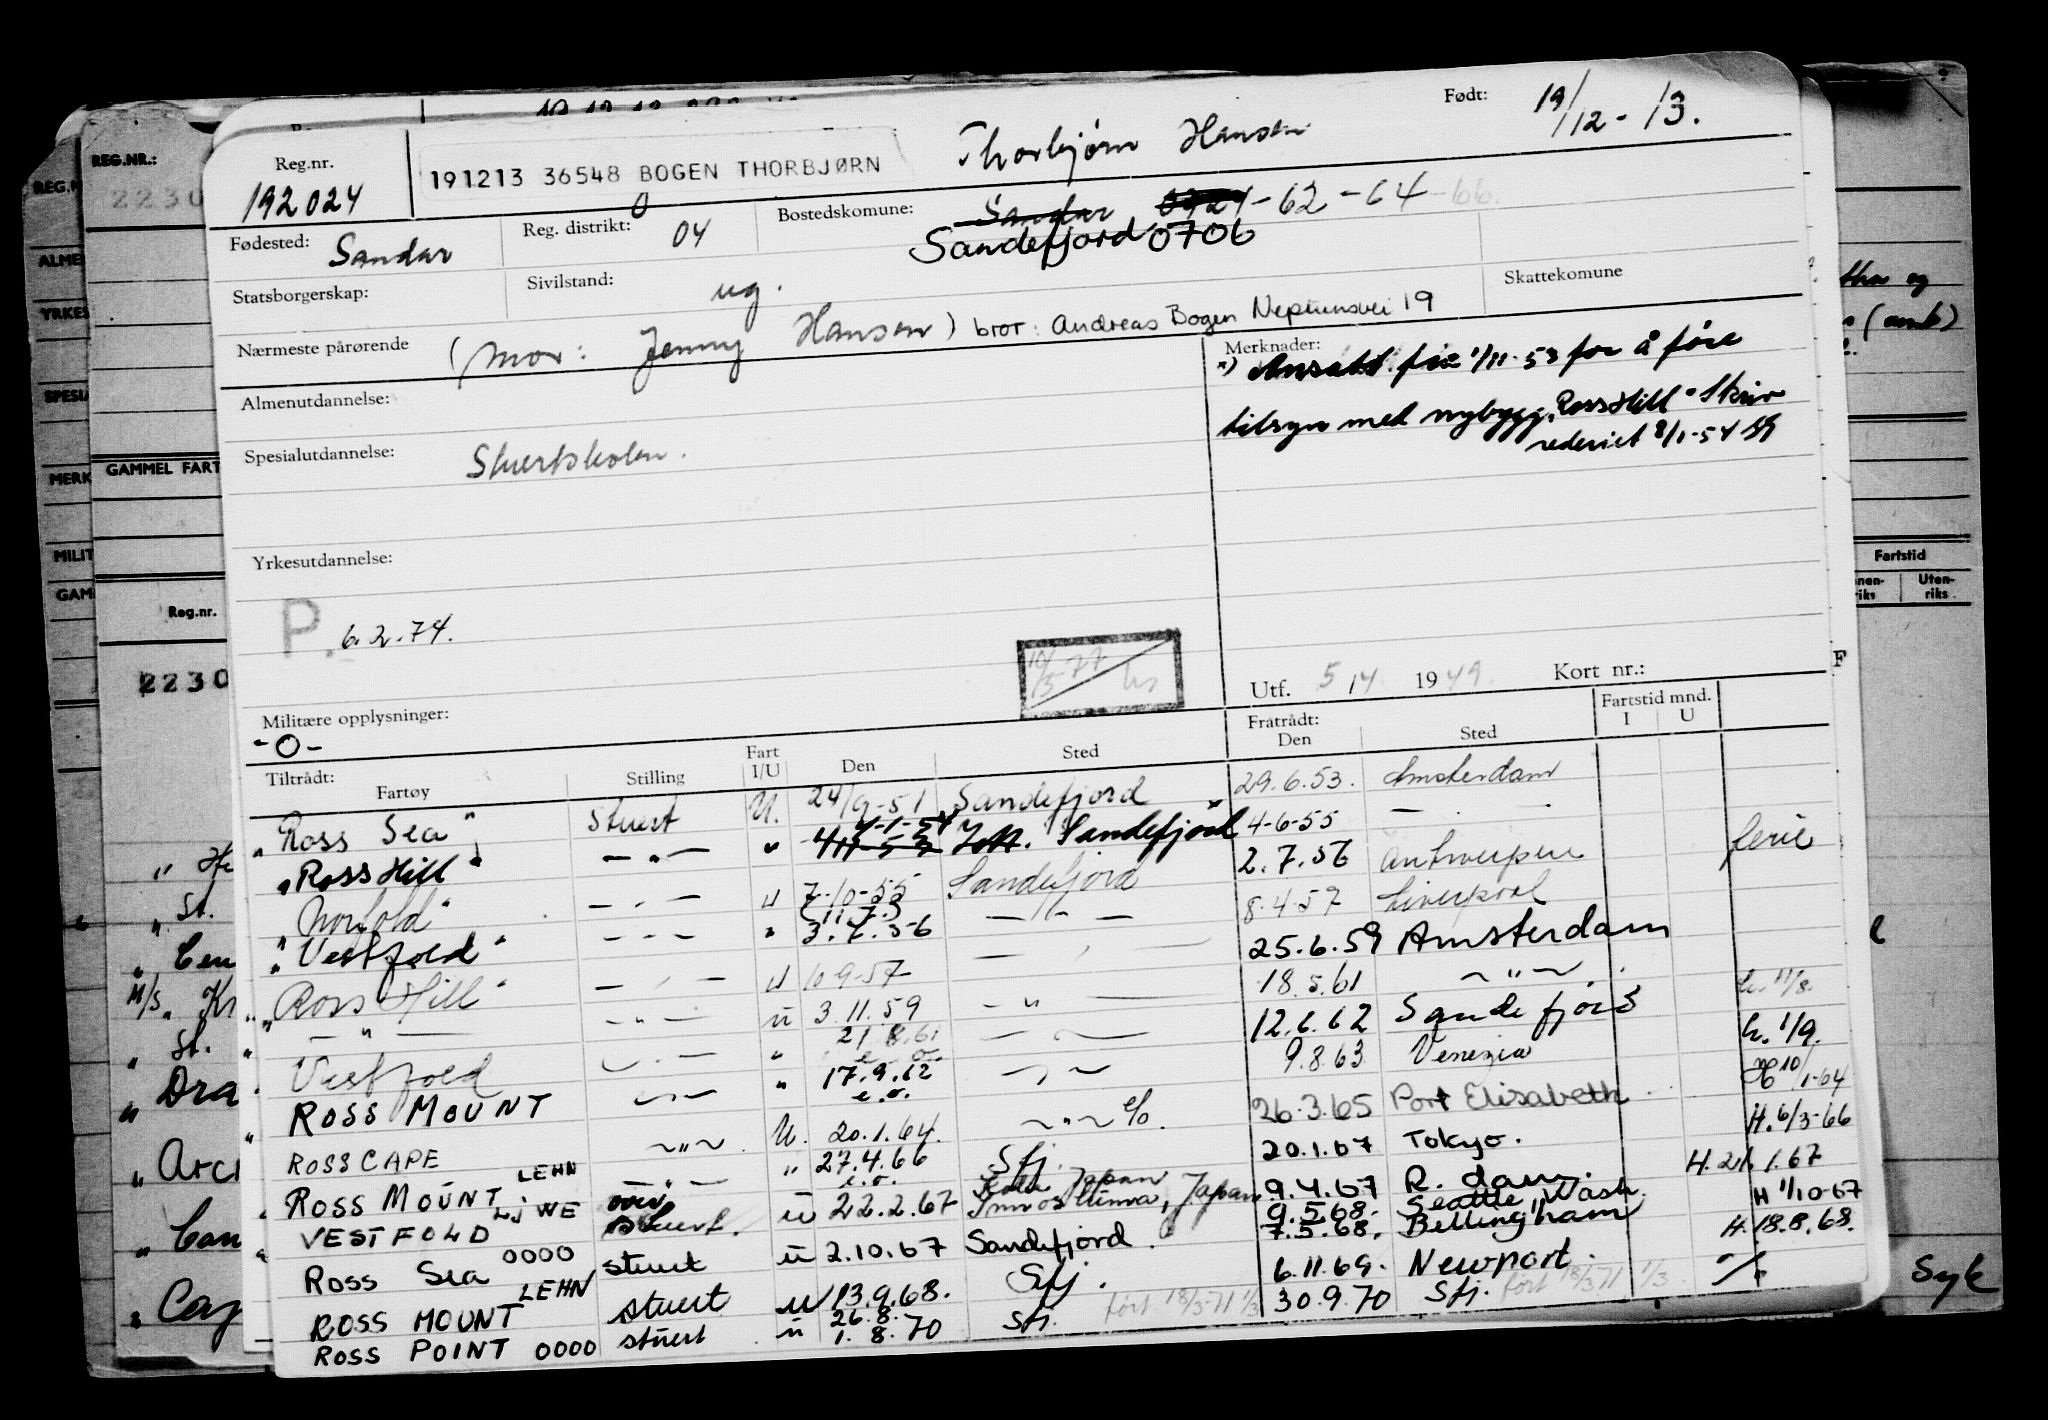 Født: 19/12-13.
Reg.nr. 192024
191213 36548 BOGEN THORBJØRN
Thorbjørn Hansen
Fødested: Sandar
Reg. distrikt: 04
Bostedskomune: Sandar 0721-62-64-66.
Sandefjord 0706
Statsborgerskap:
Sivilstand: ug.
Skattekomune
Nærmeste pårørende (mor: Jenny Hansen) bror: Andreas Bogen Neptunsvei 19
Almenutdannelse:
Merknader:
x) Ansatt fra 1/11-53 for å føre
tilsyn med nybygg. "Ross Hill" Skriv
rederiet 8/1-54
Spesialutdannelse: Stuertskolen.
Yrkesutdannelse:
P. 6.2.74.
10/5-77
Utf. 5/4 1949. Kort nr.:
Militære opplysninger:
-0-
Tiltrådt: Fartøy Stilling Fart I/U Den Sted Fratrådt: Den Sted Fartstid mnd. I U
"Ross Sea" Stuert U. 24/9-51 Sandefjord 29.6.53. Amsterdam
"Ross Hill" — " — " 4-1-54 Sandefjord 4-6-55 —
"Norfold" — " — u 7-10-55 Sandefjord 2.7.56 Antwerpen ferie
"Vestfold" — " — " 3.7.56 — " — 8-4-57 Liverpool
"Ross Hill" — " — u 10-9-57 25.6.59 Amsterdam
— " — — " — u 3.11.59 — " — 18.5.61 — " —
Vestfold — " — " 21.8.61 e.o. 12.6.62 Sandefjord
ROSS MOUNT — " — " 17.9.62 e.o. — " — 9.8.63 Venezia h. 1/9.
ROSS CAPE — " — U. 20.1.64. — " — e/o. 26.3.65 Port Elisabeth H 10/1-64
ROSS MOUNT LEHN — " — " 27.4.66 e.o. Sfj. 20.1.67 Tokyo. H. 6/3-66
VESTFOLD LJWE Stuert. u 22.2.67 Japan 9.4.67 R.dam. H. 26.1.67
ROSS SEA 0000 stuert u 2.10.67 Sandefjord. 9.5.68. Seattle, Wash. H 1/10-67
7.5.68. Bellingham
ROSS MOUNT LEHN stuert u 13.9.68. Sfj. 6.11.69. Newport. H. 18.8.68.
ROSS POINT 0000 stuert u 26.8. 1.8.70 Sfj. ført 18/3-71 1/3 30.9.70 Sfj. ført 18/3 71 1/3
REG.NR.:
2230
GAMMEL FART
Reg.nr.
2230
REG.N
ALME
YRKES
SPESIA
MERK
MILIT
GAM
" He
" St.
" Cen
M/S. " Kr
" St.
" Dra
" Arc
" Can
" Cay
tha og
(amb)
Fartstid
nen-riks
Uten-riks
F
Syk